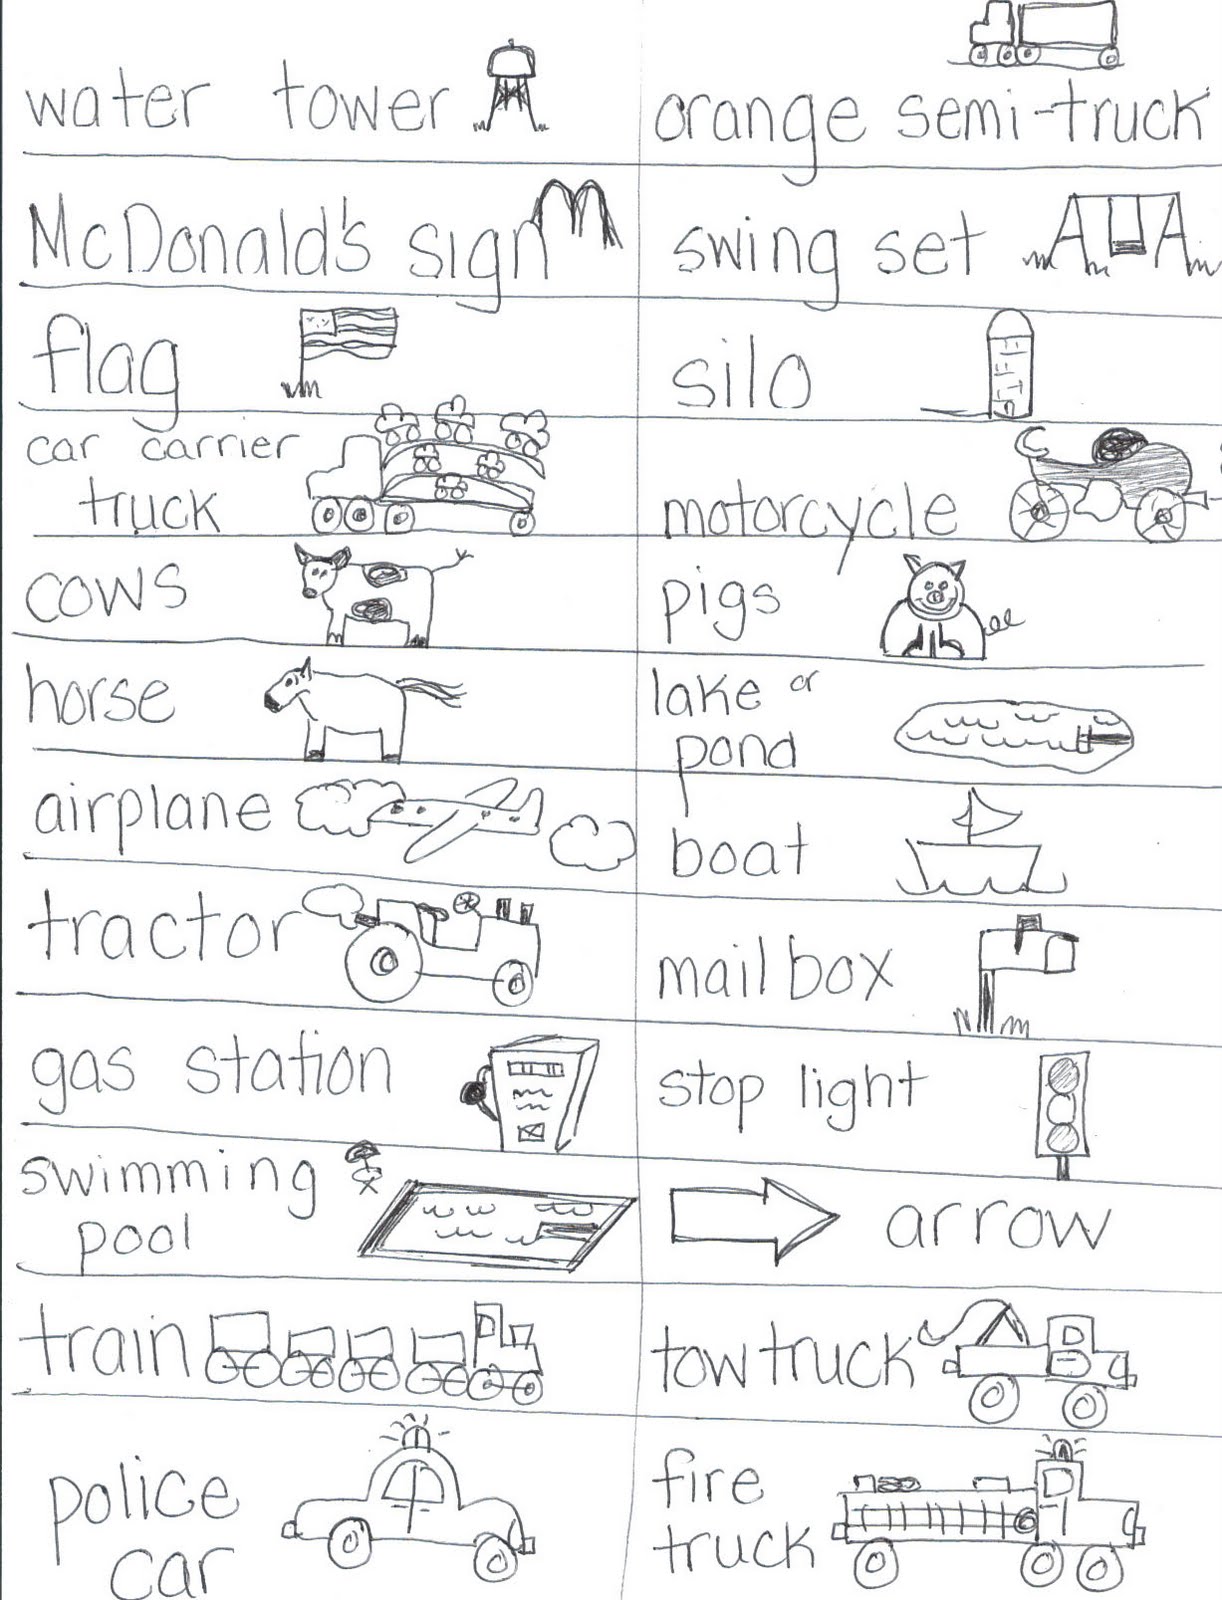 water tower
orange semi-truck
McDonald's sign
swing set
flag
silo
car carrier
truck
motorcycle
cows
pigs
horse
lake or
pond
airplane
boat
tractor
mail box
gas station
stop light
swimming
pool
arrow
train
tow truck
police
car
fire
truck